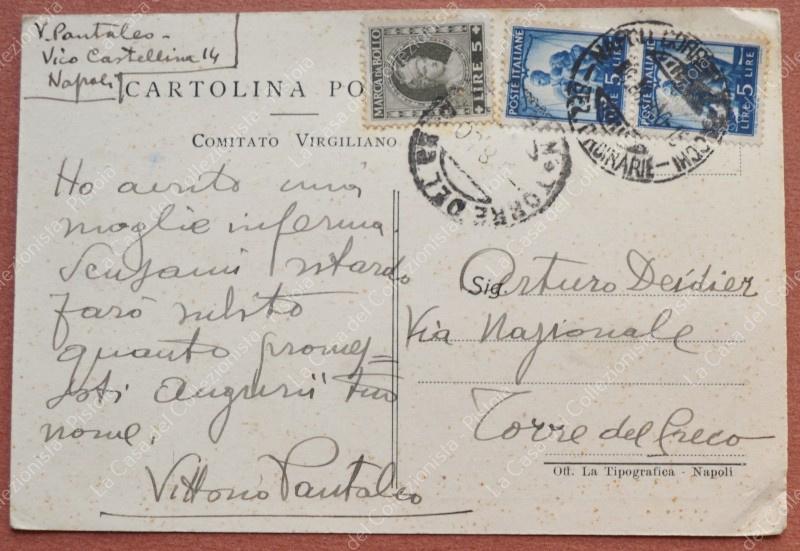 V. Pantaleo -
Vico Castellina 14
Napoli
CARTOLINA PO
COMITATO VIRGILIANO
MARCA DA BOLLO
LIRE 5
POSTE ITALIANE
5 LIRE
POSTE ITALIANE
LIRE 5
TORRE DEL
Ho avuto una
moglie inferma.
Scusami ritardo
farò subito
quanto promes=
soti auguri tuo
nome.
Vittorio Pantaleo
Sig. Arturo Desidier
Via Nazionale
Torre del Greco
Off. La Tipografica - Napoli
La Casa del Collezionista - Pistoia